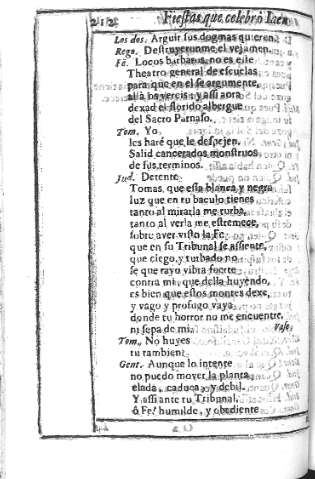 212 Fiestas que celebrò Iaen
Los dos. Arguir sus dogmas quieren.
Rega. Destruyeronme el vejamen.
Fè. Locos barbaros, no es este
Theatro general de escuelas,
para que en el se argumente,
allà os vereis; y assi aora
dexad el florido albergue
del Sacro Parnaso.
Tom. Yo,
les harè que le despejen.
Salid cancerados monstruos,
de sus terminos.
Jud. Detente
Tomas, que essa blanca y negra
luz que en tu baculo tienes
tanto al mirarla me turba,
tanto al verla me estremece,
sobre aver visto la Fe,
que en su Tribunal se assiente,
que ciego, y turbado no
se que rayo vibra fuerte
contra mi, que della huyendo,
es bien que estos montes dexe,
y vago y profugo vaya
donde tu horror no me encuentre,
ni sepa de mi. Vase.
Tom. No huyes
tu tambien?
Gent. Aunque lo intente
no puedo mover la planta
elada, caduca, y debil.
Y assi ante tu Tribunal,
ò Fe! humilde, y obediente